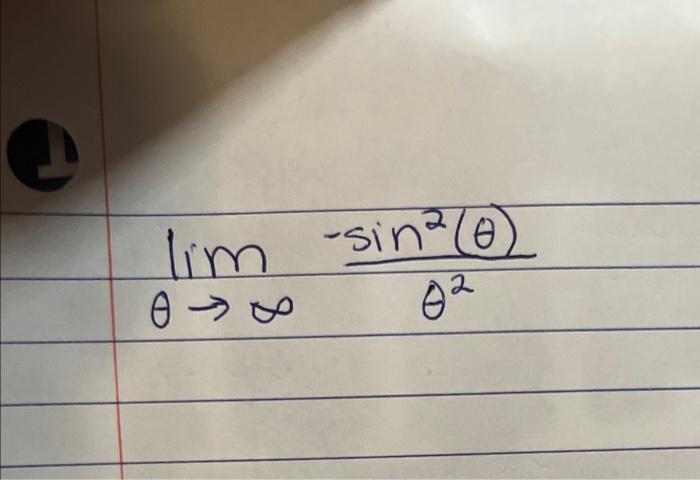 lim -sin²(θ)
θ → ∞ θ²